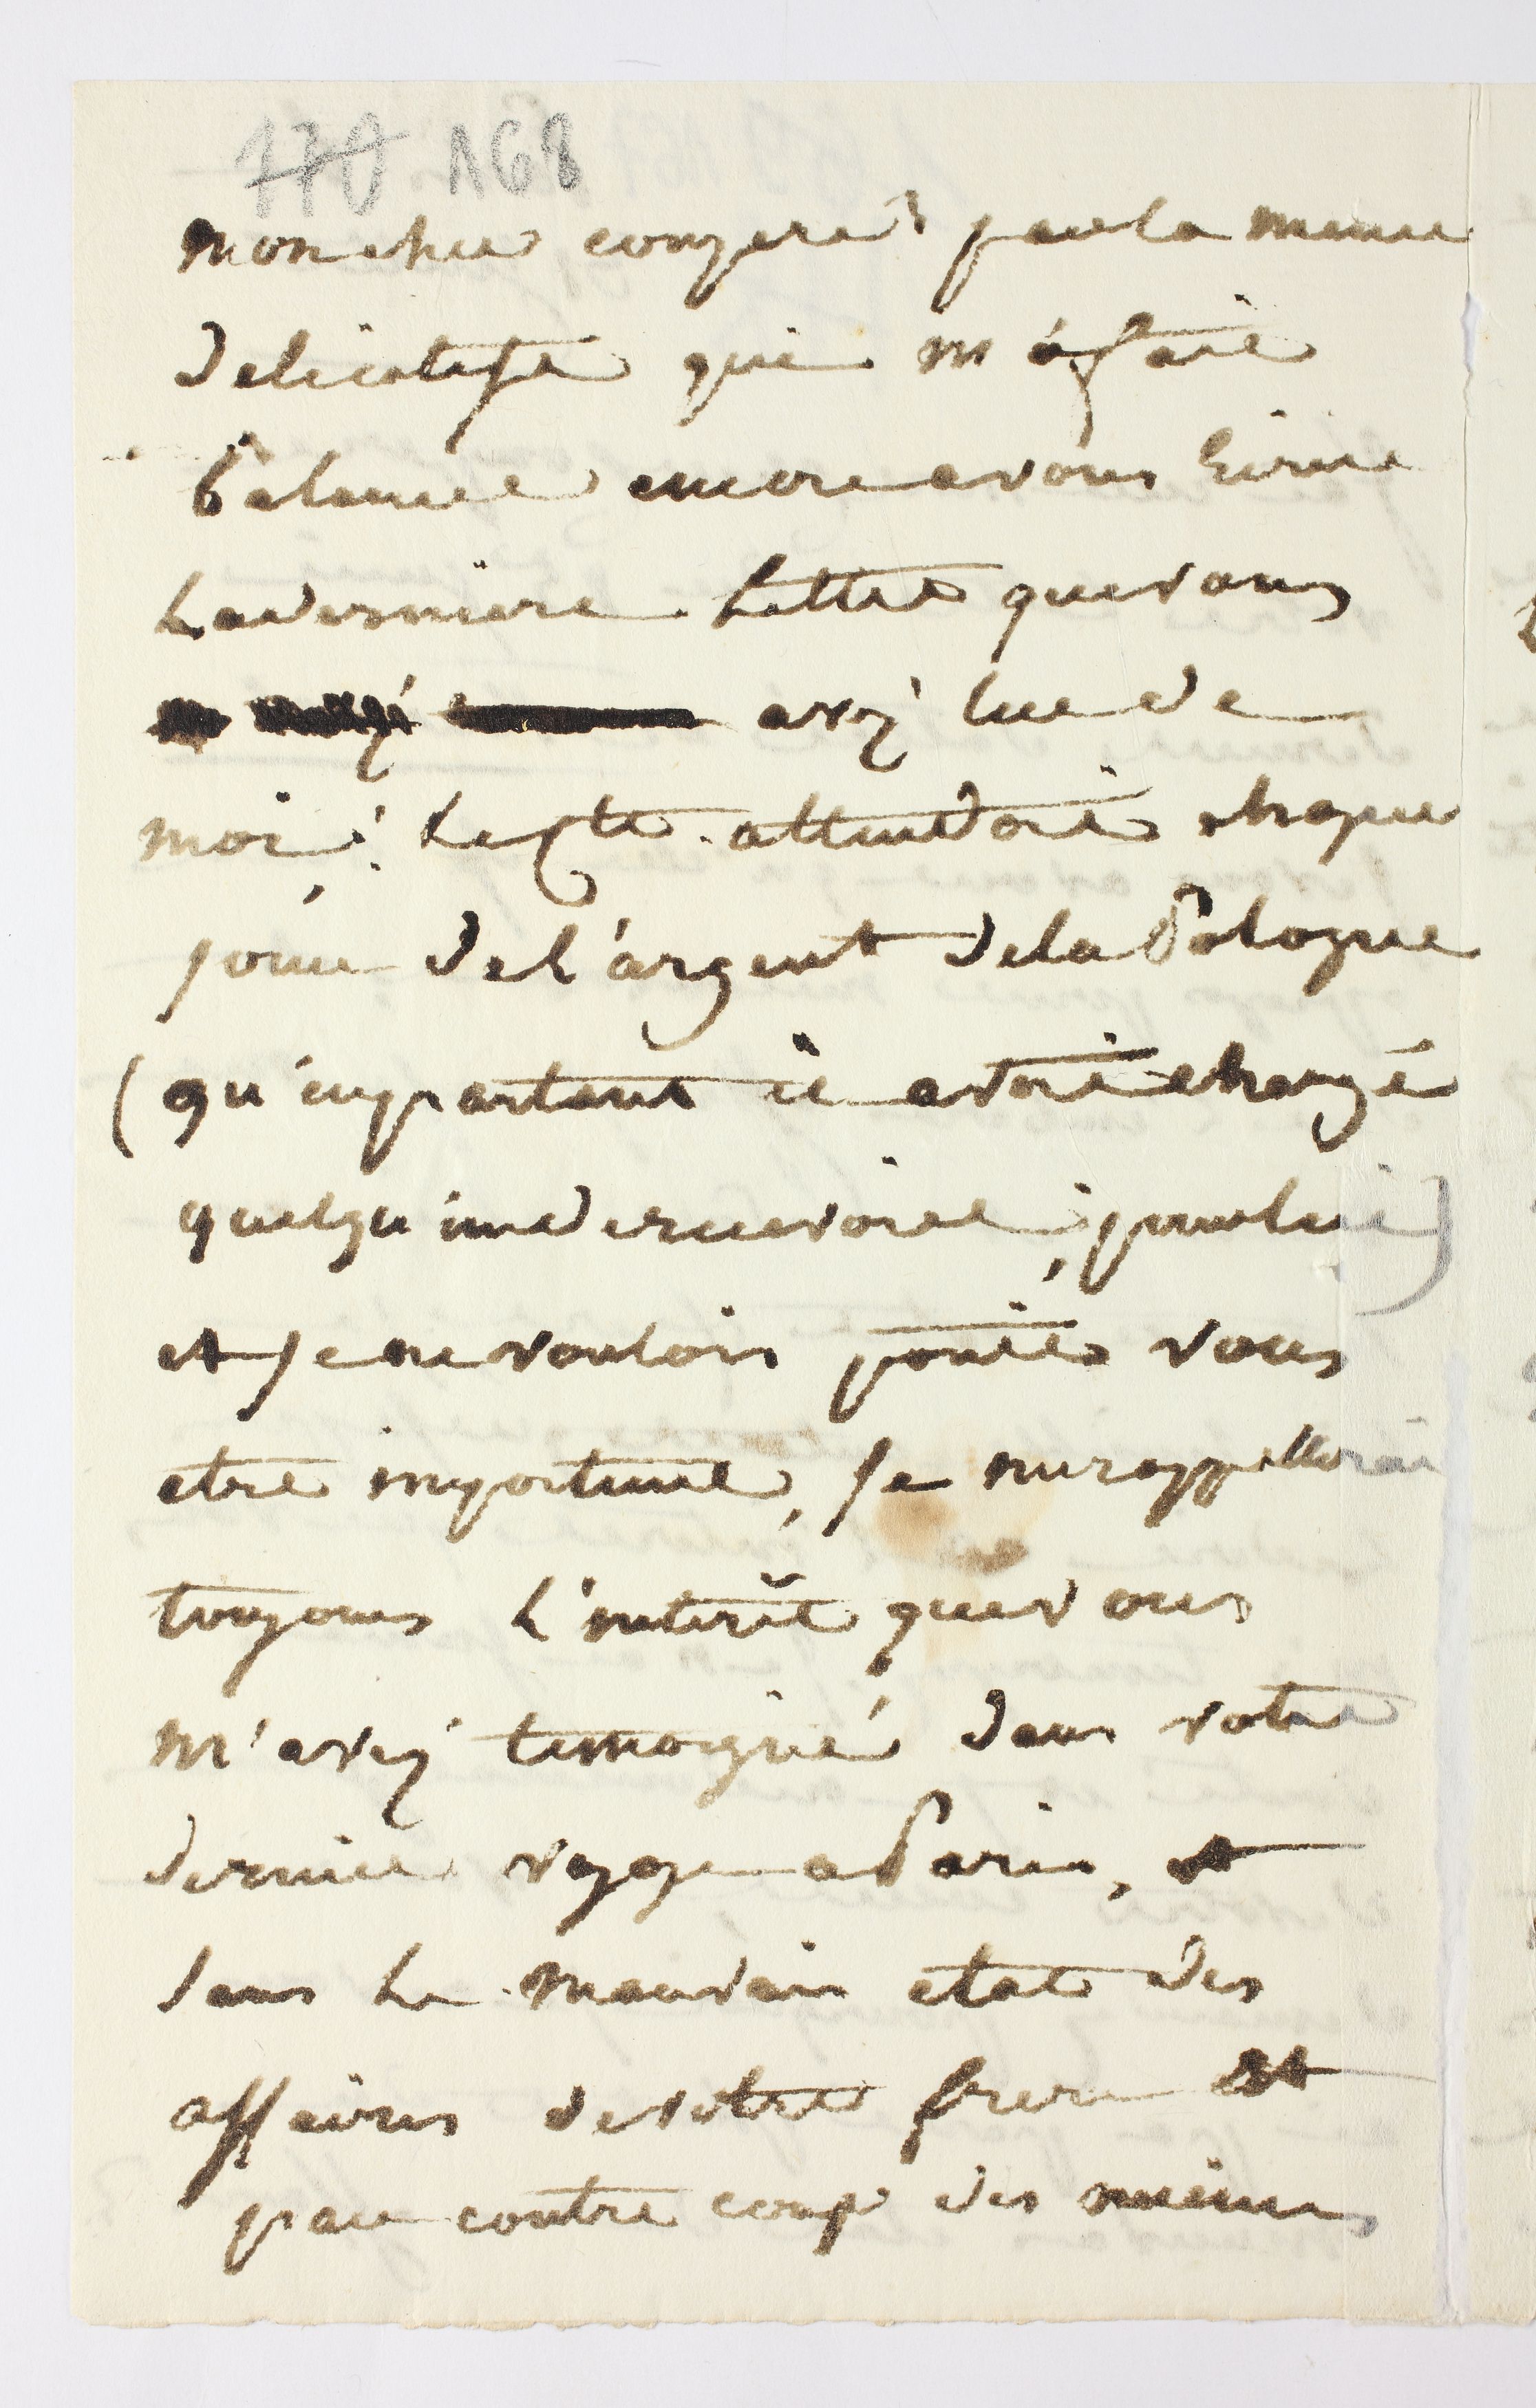 170 168
mon cher congerer par la meme
delicatesse qui m'a fait
balancer encore a vous Ecrire
La derniere Lettre que vous
avez lue de
moi : Lefebre attendoit chaque
jour de L'argent de la Pologne
(qu'en partant il avoit chargé
quelqu'un de recevoir, pour lui)
et je ne voulois point vous
etre importune, je me rappellerai
toujours L'interêt que vous
m'avez temoigné dans votre
dernier voyage a Paris, et
dans Le mauvais etat des
affaires de votre frere et
par contre coup des mienes